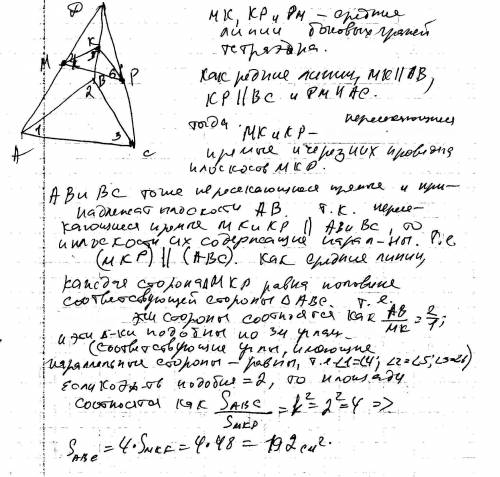 D
K
M 4 5 6 P
B
2
1 3
A C
MK, KP и PM – средние
линии боковых граней
тетраэдра.
Как средние линии, MK∥AB,
KP∥BC и PM∥AC.
тогда пересекающиеся
MK и KP –
прямые и через них проведена
плоскость MKP.
AB и BC тоже пересекающиеся прямые и при-
надлежат плоскости AB. т.к. пересе-
кающиеся прямые MK и KP ∥ AB и BC, то
и плоскости их содержащие парал-ны. т.е.
(MKP) ∥ (ABC). Как средние линии,
каждая сторона ΔMKP равна половине
соответствующей стороны ΔABC. т.е.
эти стороны соотносятся как AB/MK = 2/1;
и эти Δ-ки подобны по 3м углам
(соответствующие углы, имеющие
параллельные стороны – равны, т.е. ∠1=∠4; ∠2=∠5, ∠3=∠6)
Если коэф-т подобия = 2, то площади
соотносятся как S ABC / S MKP = k² = 2² = 4 =>
S ABC = 4·S MKP = 4·48 = 192 см².